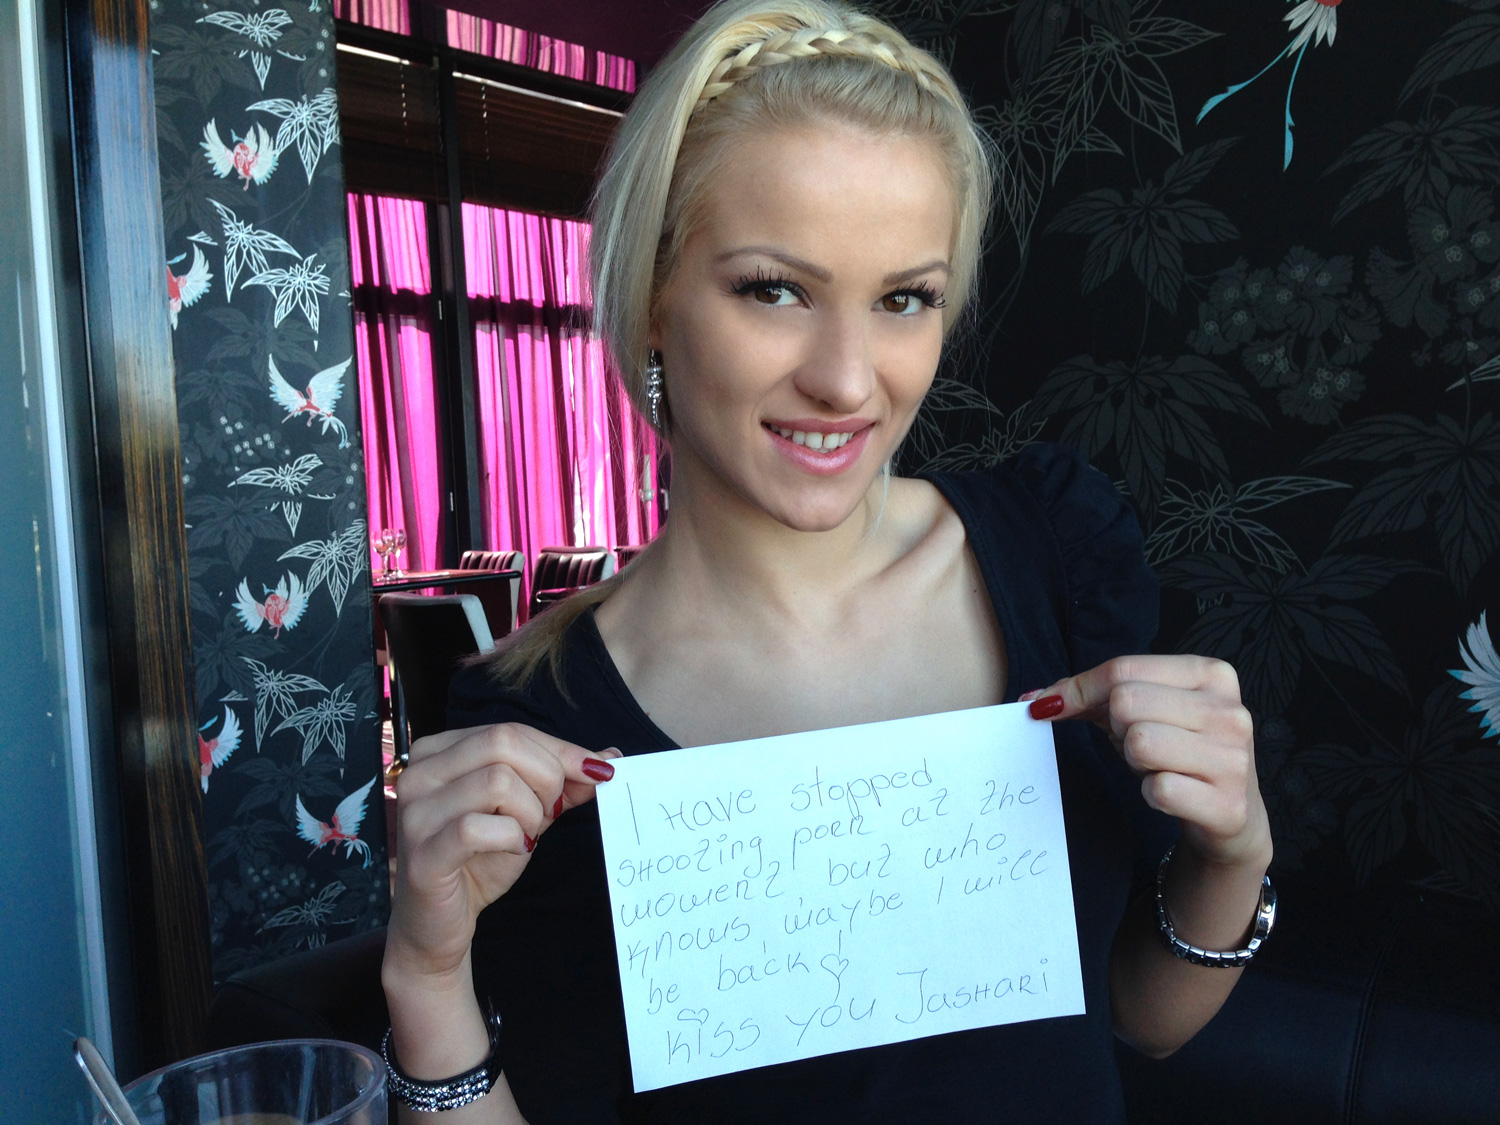 I HAVE stopped
SHOOTing porn at the
moment but who
knows maybe I will
be back!
Kiss you JASHARi